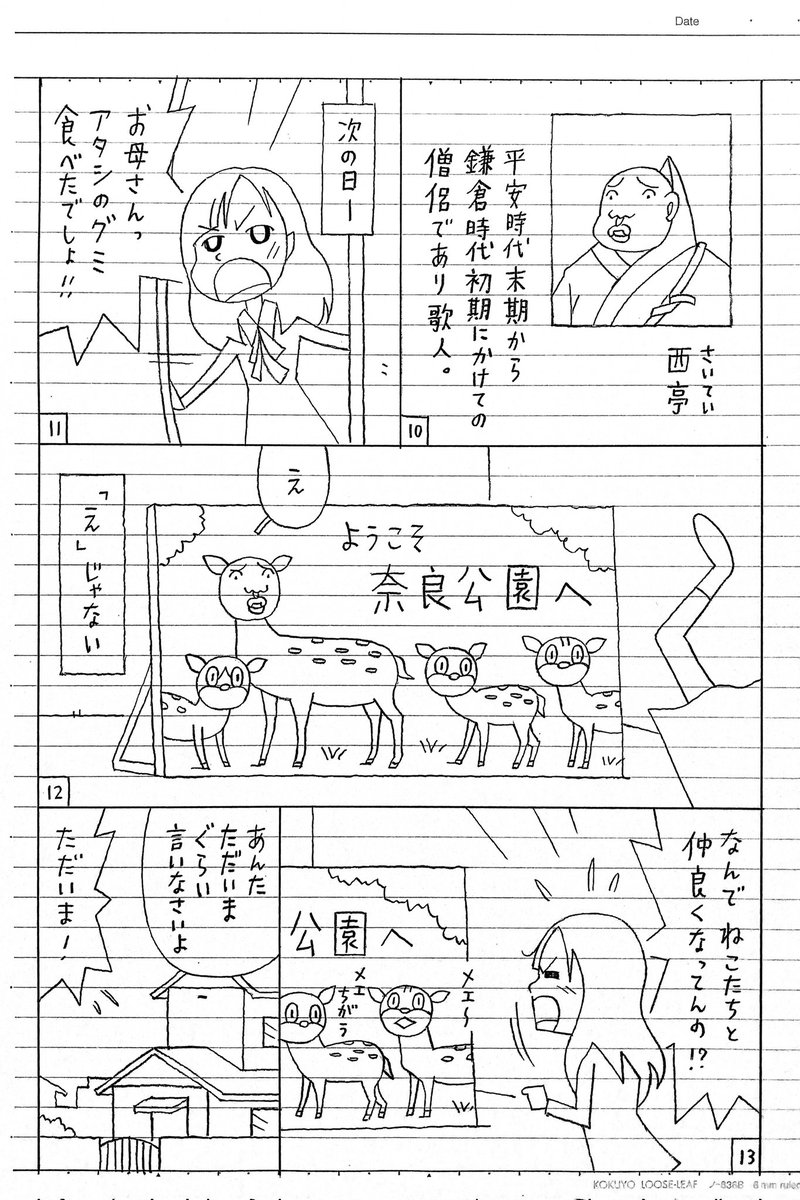 Date
さいてい
西亭
平安時代末期から
鎌倉時代初期にかけての
僧侶であり歌人。
10
次の日ー
お母さんっ
アタシのグミ
食べたでしょ!!
11
え
ようこそ
奈良公園へ
「え」じゃない
12
なんでねこたちと
仲良くなってんの!?
公園へ
メェ〜
メェ
ちがう
13
あんた
ただいま
ぐらい
言いなさいよ
ただいま!
KOKUYO LOOSE-LEAF ノ-836B 6 mm ruled